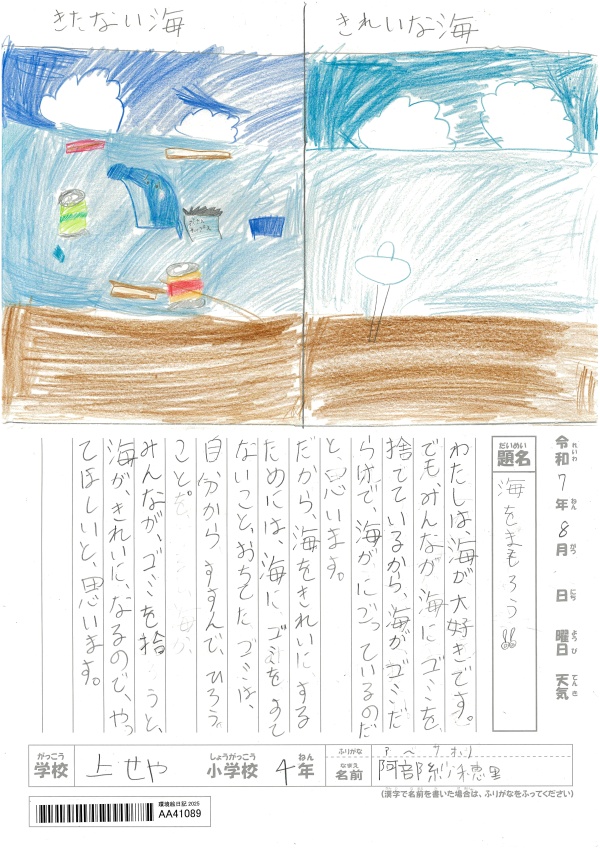 きたない海
きれいな海
令和7年8月 日 曜日 天気
れいわ ねん がつ にち ようび てんき
だいめい
題名
海をまもろう!!
わたしは、海が大好きです。
でも、みんなが海にゴミを
捨てているから、海が、ゴミだ
らけで、海がにごっているのだ
と、思います。
だから、海をきれいに、する
ためには、海に、ゴミをすて
ないこと、おちてた、ゴミは、
自分から、すすんで、ひろう
こと。
みんなが、ゴミを拾うと、
海が、きれいに、なるので、やっ
てほしいと、思います。
がっこう
学校
上せや
しょうがっこう
小学校
4
ねん
年
ふりがな
なまえ
名前
阿部紗穂里
(漢字で名前を書いた場合は、ふりがなをふってください)
環境絵日記2025
AA41089